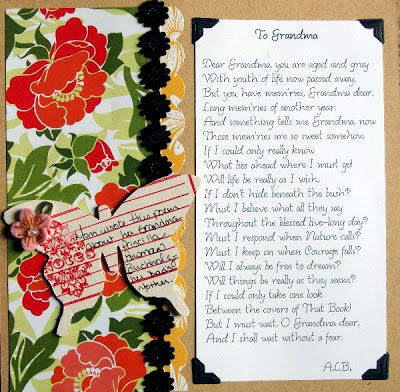 To Grandma
Dear Grandma, you are aged and gray
With youth of life now passed away,
But you have mem'ries, Grandma dear,
Long mem'ries of another year.
And something tells me Grandma, now
Those mem'ries are so sweet somehow.
If I could only really know
What lies ahead where I must go!
Will life be really as I wish,
If I don't hide beneath the bush?
Must I believe what all they say
Throughout the blessed live-long day?
Must I respond when Nature calls?
Must I keep on when Courage falls?
Will I always be free to dream?
Will things be really as they seem?
If I could only take one look
Between the covers of That Book!
But I must wait, O Grandma dear,
And I shall wait without a fear.
A.L.B.
Mom wrote this poem
about her Grandma
Human
Buchholz,
her
Mother.